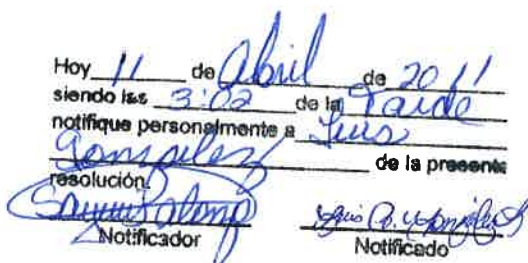 Hoy 11 de Abril de 2011
siendo las 3:02 de la Tarde
notifique personalmente a Luis
Gonzalez de la presente
resolución.
Notificador Notificado